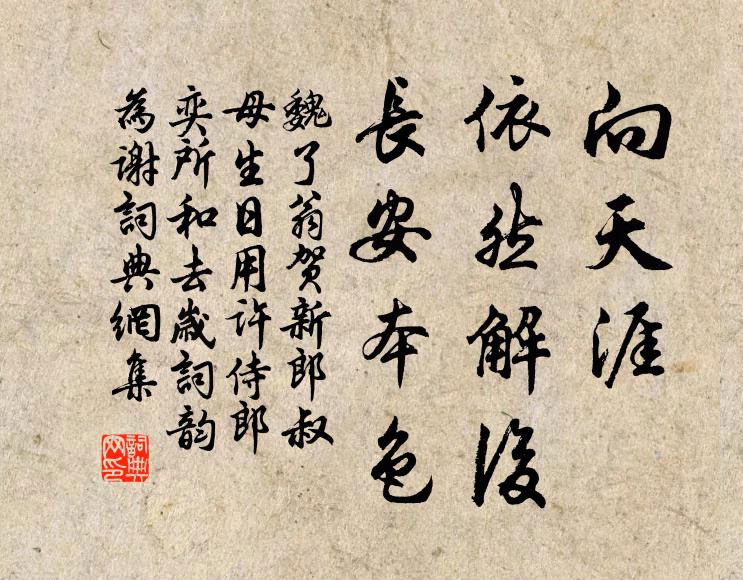 向天涯
依然解後
長安本色
魏了翁贺新郎叔
母生日用许侍郎
奕所和去歲詞韵
為谢詞典網集
詞典
网印